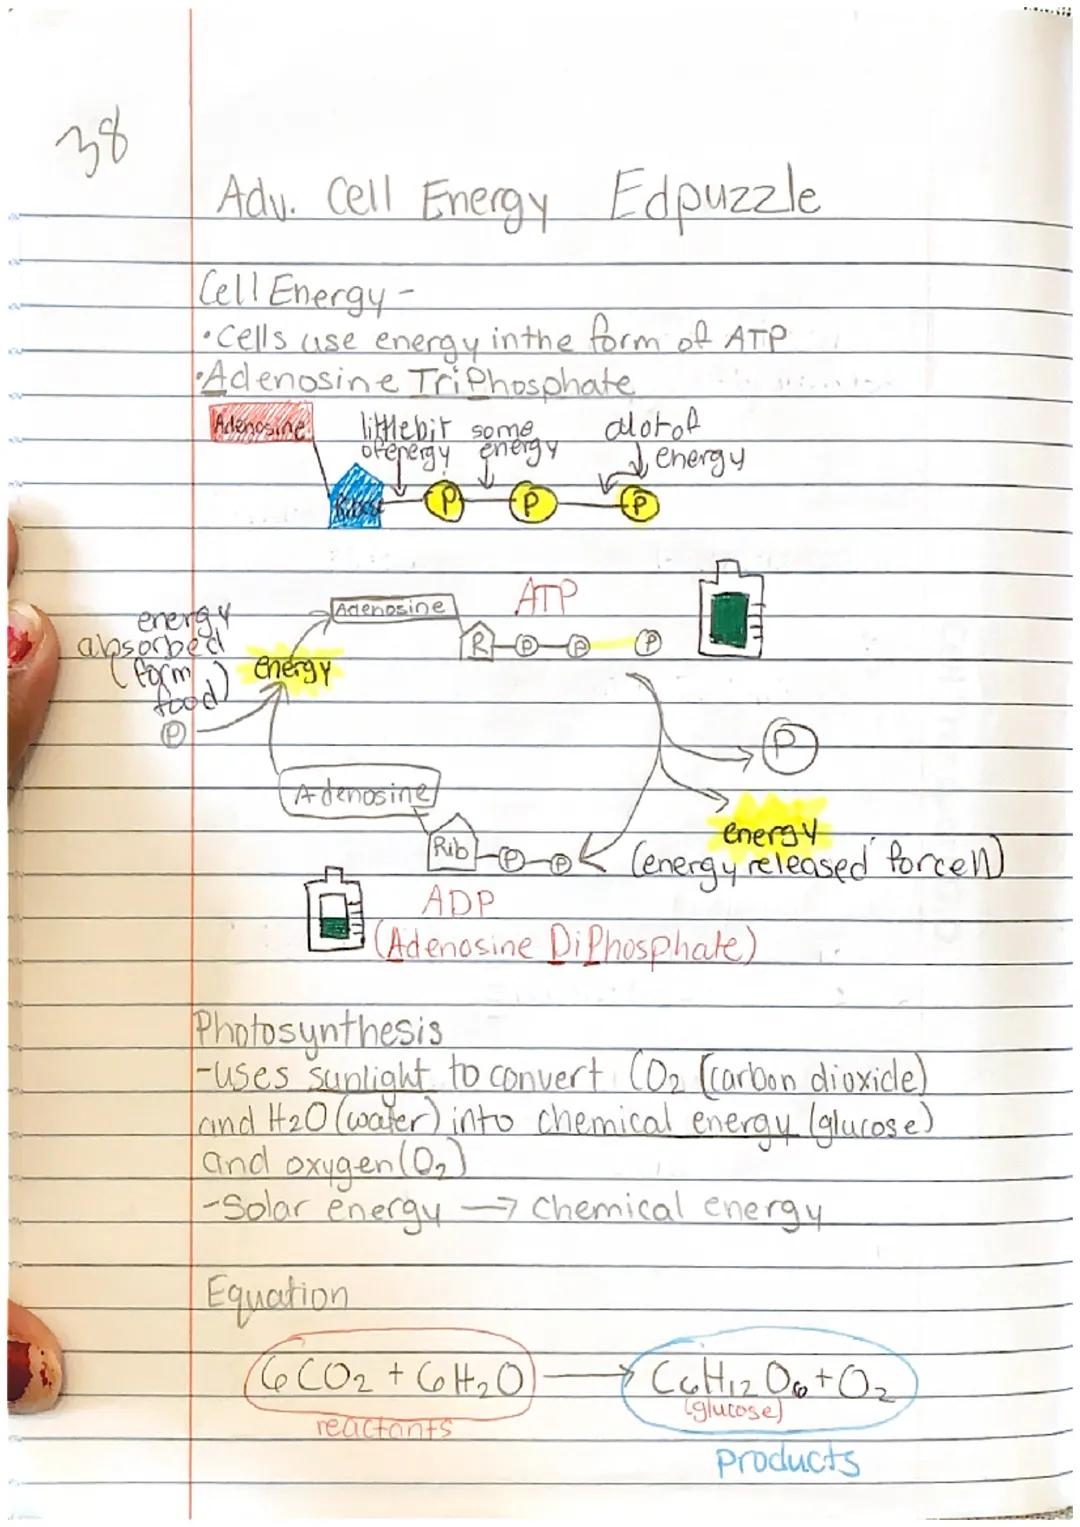 38
Adv. Cell Energy Edpuzzle
Cell Energy -
• Cells use energy in the form of ATP
• Adenosine TriPhosphate
Adenosine
little bit of energy
some energy
alot of energy
Ribose
P P P
ATP
Adenosine
R P P P
energy absorbed (form food)
energy
P
P
Adenosine
Rib P P
energy
(energy released for cell)
ADP
(Adenosine DiPhosphate)
Photosynthesis
-uses sunlight to convert CO2 (carbon dioxide)
and H2O (water) into chemical energy (glucose)
and oxygen (O2)
-Solar energy → chemical energy
Equation
6CO2 + 6H2O → C6H12O6 + O2
(glucose)
reactants
products